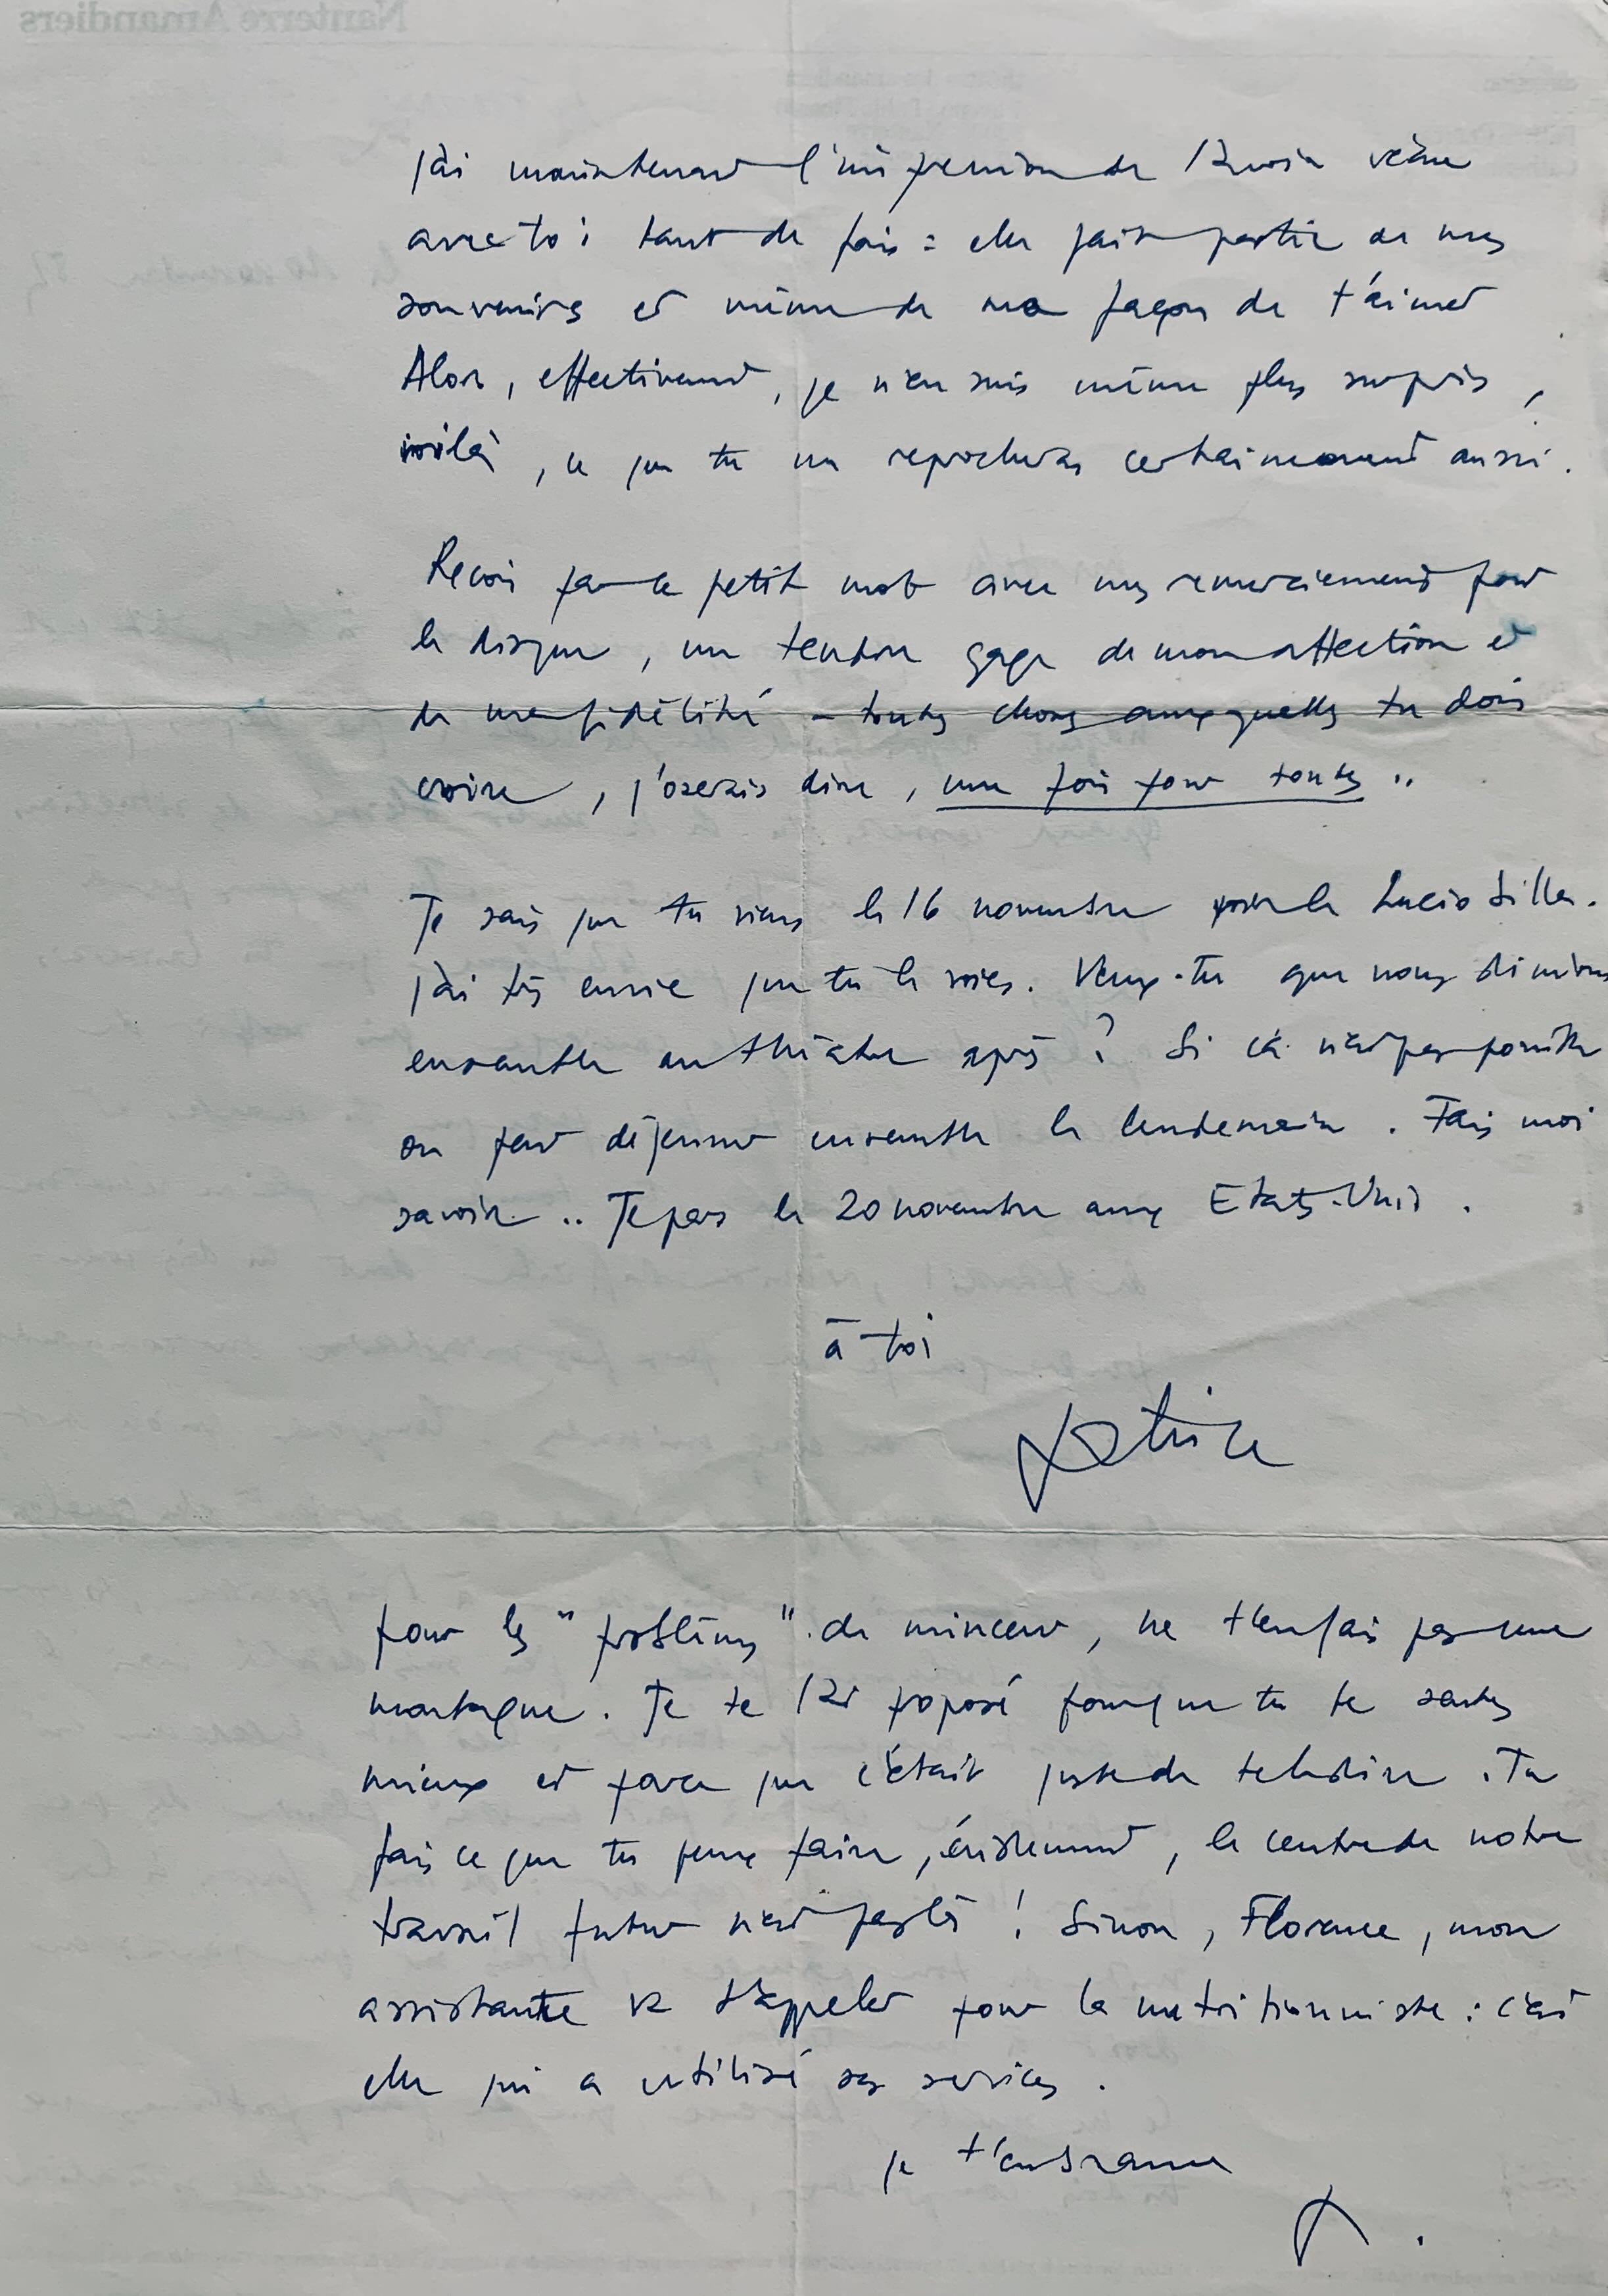 J'ai maintenant l'impression de l'avoir vécue
avec toi tant de fois : elle fait partie de mes
souvenirs et même de ma façon de t'aimer
Alors, effectivement, je n'en suis même plus surpris,
voilà, ce que tu me reprocheras certainement aussi.
Reçois par ce petit mot avec mes remerciements pour
le disque, un tendre gage de mon affection et
de ma fidélité - toutes choses auxquelles tu dois
croire, j'oserais dire, une fois pour toutes ..
Je sais que tu viens le 16 novembre pour le Lucio Silla.
J'ai très envie que tu le voies. Veux-tu que nous dinions
ensemble au théâtre après ? Si ça n'est pas possible
on peut déjeuner ensemble le lendemain. Fais moi
savoir .. Je pars le 20 novembre aux Etats-Unis.
à toi
Patrice
Pour les "problèmes" de minceur, ne t'en fais pas une
montagne. Je te l'ai proposé pour que tu te sentes
mieux et parce que c'était juste de te le dire. Tu
fais ce que tu peux faire, évidemment, le centre de notre
travail futur n'est pas là ! Sinon, Florence, mon
assistante va t'appeler pour la nutritionniste : c'est
elle qui a utilisé ses services.
je t'embrasse
P.
Nanterre Amandiers